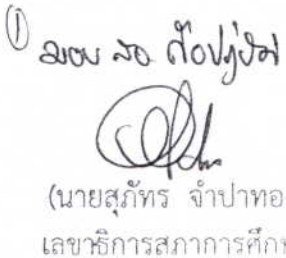 ① มอบ สอ ถือปฏิบัติ
(นายสุภัทร จำปาทอ
เลขาธิการสภาการศึกษ